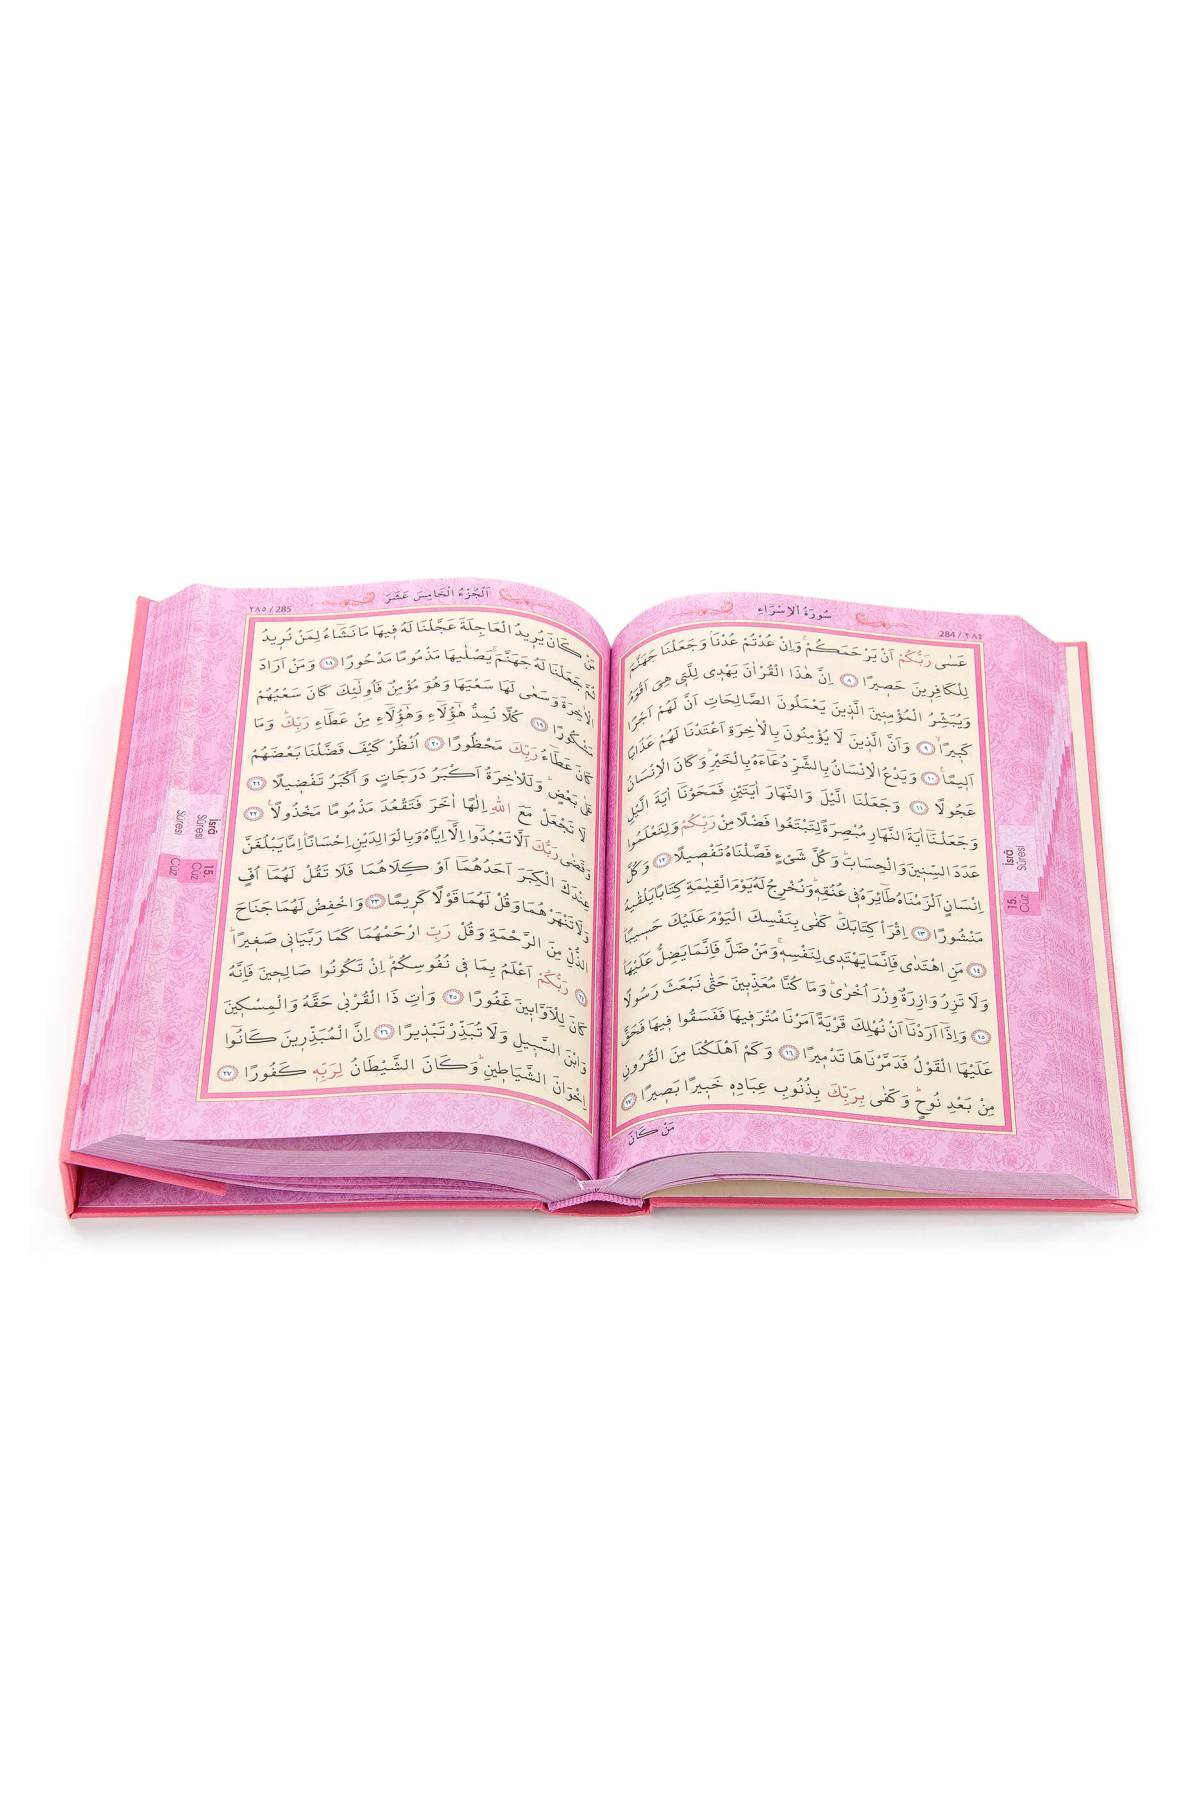 سُورَةُ الْاِسْرَاءِ
284 / ٢٨٤
عَسٰى رَبُّكُمْ اَنْ يَرْحَمَكُمْۚ وَاِنْ عُدْتُمْ عُدْنَاۢ وَجَعَلْنَا جَهَنَّمَ
لِلْكَافِرٖينَ حَصٖيرًا ﴿٨﴾ اِنَّ هٰذَا الْقُرْاٰنَ يَهْدٖى لِلَّتٖى هِىَ اَقْوَمُ
وَيُبَشِّرُ الْمُؤْمِنٖينَ الَّذٖينَ يَعْمَلُونَ الصَّالِحَاتِ اَنَّ لَهُمْ اَجْرًا
كَبٖيرًاۙ ﴿٩﴾ وَاَنَّ الَّذٖينَ لَا يُؤْمِنُونَ بِالْاٰخِرَةِ اَعْتَدْنَا لَهُمْ عَذَابًا
اَلٖيمًا۟ ﴿١٠﴾ وَيَدْعُ الْاِنْسَانُ بِالشَّرِّ دُعَٓاءَهُ بِالْخَيْرِۜ وَكَانَ الْاِنْسَانُ
عَجُولًا ﴿١١﴾ وَجَعَلْنَا الَّيْلَ وَالنَّهَارَ اٰيَتَيْنِ فَمَحَوْنَٓا اٰيَةَ الَّيْلِ
وَجَعَلْنَٓا اٰيَةَ النَّهَارِ مُبْصِرَةً لِتَبْتَغُوا فَضْلًا مِنْ رَبِّكُمْ وَلِتَعْلَمُوا
عَدَدَ السِّنٖينَ وَالْحِسَابَۜ وَكُلَّ شَىْءٍ فَصَّلْنَاهُ تَفْصٖيلًا ﴿١٢﴾ وَكُلَّ
اِنْسَانٍ اَلْزَمْنَاهُ طَٓائِرَهُ فٖى عُنُقِهٖۜ وَنُخْرِجُ لَهُ يَوْمَ الْقِيٰمَةِ كِتَابًا يَلْقٰيهُ
مَنْشُورًا ﴿١٣﴾ اِقْرَأْ كِتَابَكَۜ كَفٰى بِنَفْسِكَ الْيَوْمَ عَلَيْكَ حَسٖيبًاۜ
﴿١٤﴾ مَنِ اهْتَدٰى فَاِنَّمَا يَهْتَدٖى لِنَفْسِهٖۚ وَمَنْ ضَلَّ فَاِنَّمَا يَضِلُّ عَلَيْهَاۜ
وَلَا تَزِرُ وَازِرَةٌ وِزْرَ اُخْرٰىۜ وَمَا كُنَّا مُعَذِّبٖينَ حَتّٰى نَبْعَثَ رَسُولًا
﴿١٥﴾ وَاِذَٓا اَرَدْنَٓا اَنْ نُهْلِكَ قَرْيَةً اَمَرْنَا مُتْرَفٖيهَا فَفَسَقُوا فٖيهَا فَحَقَّ
عَلَيْهَا الْقَوْلُ فَدَمَّرْنَاهَا تَدْمٖيرًا ﴿١٦﴾ وَكَمْ اَهْلَكْنَا مِنَ الْقُرُونِ
مِنْ بَعْدِ نُوحٍۜ وَكَفٰى بِرَبِّكَ بِذُنُوبِ عِبَادِهٖ خَبٖيرًا بَصٖيرًا ﴿١٧﴾
مَنْ كَانَ
İsrâ
Sûresi
15.
Cüz
اَلْجُزْءُ الْخَامِسَ عَشَرَ
٢٨٥ / 285
مَنْ كَانَ يُرٖيدُ الْعَاجِلَةَ عَجَّلْنَا لَهُ فٖيهَا مَا نَشَٓاءُ لِمَنْ نُرٖيدُ
ثُمَّ جَعَلْنَا لَهُ جَهَنَّمَۚ يَصْلٰيهَا مَذْمُومًا مَدْحُورًا ﴿١٨﴾ وَمَنْ اَرَادَ
الْاٰخِرَةَ وَسَعٰى لَهَا سَعْيَهَا وَهُوَ مُؤْمِنٌ فَاُو۬لٰٓئِكَ كَانَ سَعْيُهُمْ
مَشْكُورًا ﴿١٩﴾ كُلًّا نُمِدُّ هٰٓؤُ۬لَٓاءِ وَهٰٓؤُ۬لَٓاءِ مِنْ عَطَٓاءِ رَبِّكَۜ وَمَا
كَانَ عَطَٓاءُ رَبِّكَ مَحْظُورًا ﴿٢٠﴾ اُنْظُرْ كَيْفَ فَضَّلْنَا بَعْضَهُمْ
عَلٰى بَعْضٍۜ وَلَلْاٰخِرَةُ اَكْبَرُ دَرَجَاتٍ وَاَكْبَرُ تَفْضٖيلًا ﴿٢١﴾
لَا تَجْعَلْ مَعَ اللّٰهِ اِلٰهًا اٰخَرَ فَتَقْعُدَ مَذْمُومًا مَخْذُولًا۟ ﴿٢٢﴾
وَقَضٰى رَبُّكَ اَلَّا تَعْبُدُٓوا اِلَّٓا اِيَّاهُ وَبِالْوَالِدَيْنِ اِحْسَانًاۜ اِمَّا يَبْلُغَنَّ
عِنْدَكَ الْكِبَرَ اَحَدُهُمَٓا اَوْ كِلَاهُمَا فَلَا تَقُلْ لَهُمَٓا اُفٍّ
وَلَا تَنْهَرْهُمَا وَقُلْ لَهُمَا قَوْلًا كَرٖيمًا ﴿٢٣﴾ وَاخْفِضْ لَهُمَا جَنَاحَ
الذُّلِّ مِنَ الرَّحْمَةِ وَقُلْ رَبِّ ارْحَمْهُمَا كَمَا رَبَّيَانٖى صَغٖيرًاۜ
﴿٢٤﴾ رَبُّكُمْ اَعْلَمُ بِمَا فٖى نُفُوسِكُمْۜ اِنْ تَكُونُوا صَالِحٖينَ فَاِنَّهُ
كَانَ لِلْاَوَّابٖينَ غَفُورًا ﴿٢٥﴾ وَاٰتِ ذَا الْقُرْبٰى حَقَّهُ وَالْمِسْكٖينَ
وَابْنَ السَّبٖيلِ وَلَا تُبَذِّرْ تَبْذٖيرًا ﴿٢٦﴾ اِنَّ الْمُبَذِّرٖينَ كَانُٓوا
اِخْوَانَ الشَّيَاطٖينِۜ وَكَانَ الشَّيْطَانُ لِرَبِّهٖ كَفُورًا ﴿٢٧﴾
İsrâ
Sûresi
Sûresi
15.
Cüz
Cüz